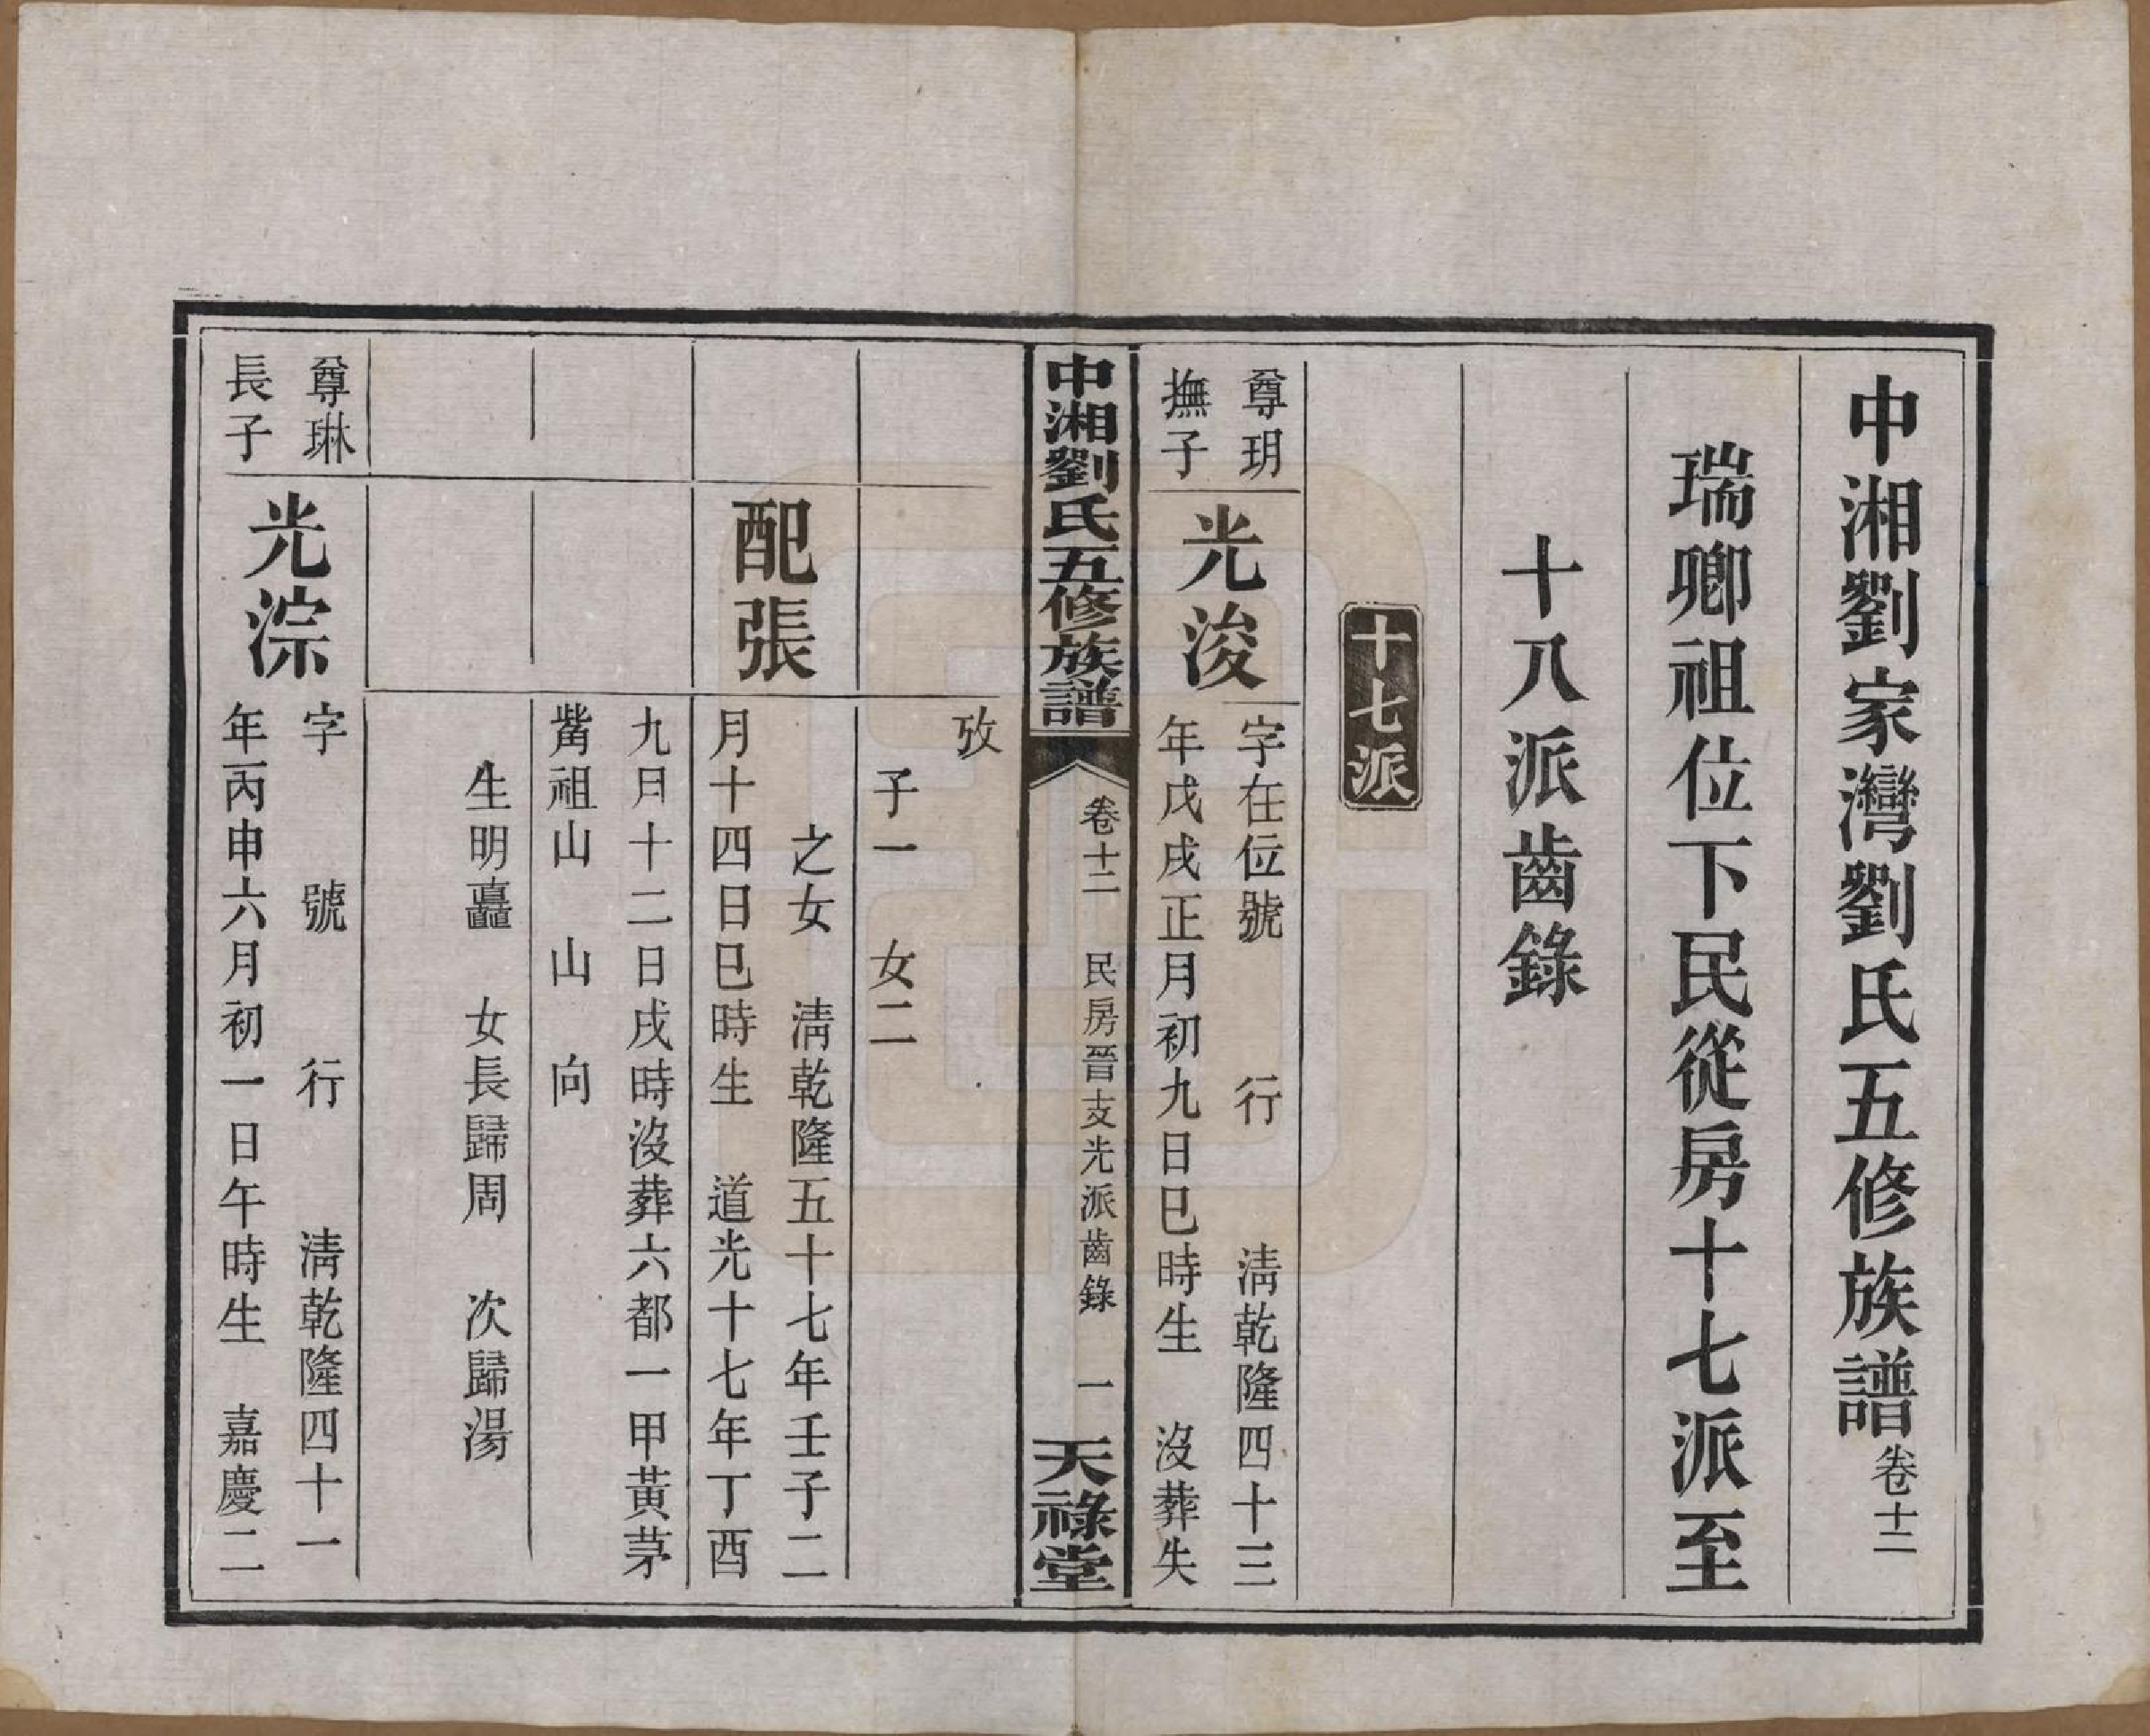 中湘劉家灣劉氏五修族譜卷十二
瑞卿祖位下民從房十七派至
十八派齒錄
十七派
尊玥
撫子
光浚
字在位號　　行　　淸乾隆四十三
年戊戌正月初九日巳時生　沒葬失
中湘劉氏五修族譜
卷十二　民房晉支光派齒錄　一
天祿堂
攷
子一　女二
配張
之女　淸乾隆五十七年壬子二
月十四日巳時生　道光十七年丁酉
九月十二日戌時沒葬六都一甲黃茅
嵩祖山　山　向
生明矗　女長歸周　次歸湯
尊琳
長子
光淙
字　　號　　行　　淸乾隆四十一
年丙申六月初一日午時生　嘉慶二